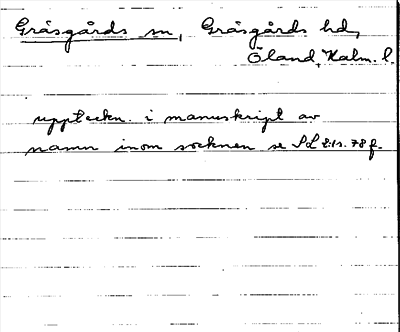 Gräsgårds sn, Gräsgårds hd,
Öland, Kalm. l.
uppteckn. i manuskript av
namn inom socknen se SL 2:1 s. 78 f.